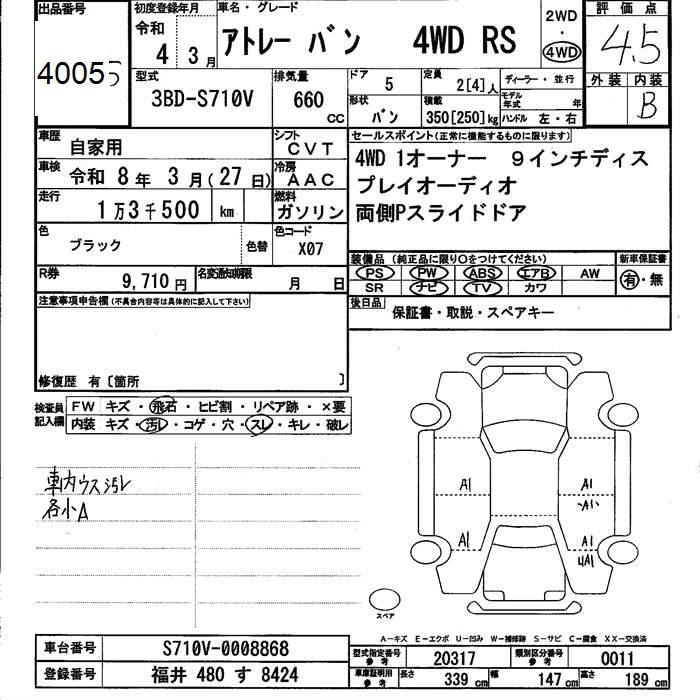 出品番号
40055
初度登録年月
令和
4年 3月
車名・グレード
アトレー バン 4WD RS
2WD
・
4WD
評価点
4.5
外装 内装
B
型式
3BD-S710V
排気量
660
CC
ドア
5
定員
2[4]人
ディーラー・並行
形状
バン
積載
350[250]kg
モデル年式 年
ハンドル 左・右
車歴
自家用
シフト
CVT
車検
令和 8年 3月(27日)
冷房
AAC
走行
1万3千500 km
燃料
ガソリン
色
ブラック
色替
色コード
X07
R券
9,710円
名変通知期限
月 日
セールスポイント(正常に機能するものに限ります)
4WD 1オーナー 9インチディス
プレイオーディオ
両側Pスライドドア
装備品 (純正品に限り○をつけてください)
新車保証書
PS PW ABS エアB AW
有・無
SR ナビ TV カワ
後日品
保証書・取説・スペアキー
注意事項申告欄(不具合内容等は具体的に記入して下さい)
修復歴 有〔箇所 〕
検査員記入欄
FW キズ・飛石・ヒビ割・リペア跡・×要
内装 キズ・汚レ・コゲ・穴・スレ・キレ・破レ
車内ウス汚レ
各小A
A1 A1
A1
A1 A1
4A1
スペア
A-キズ E-エクボ U-凹み W-補修跡 S-サビ C-腐食 XX-交換済
車台番号
S710V-0008868
登録番号
福井 480 す 8424
型式指定番号 参考
20317
類別区分番号 参考
0011
車庫証明用 参考
長さ 339 cm
幅 147 cm
高さ 189 cm